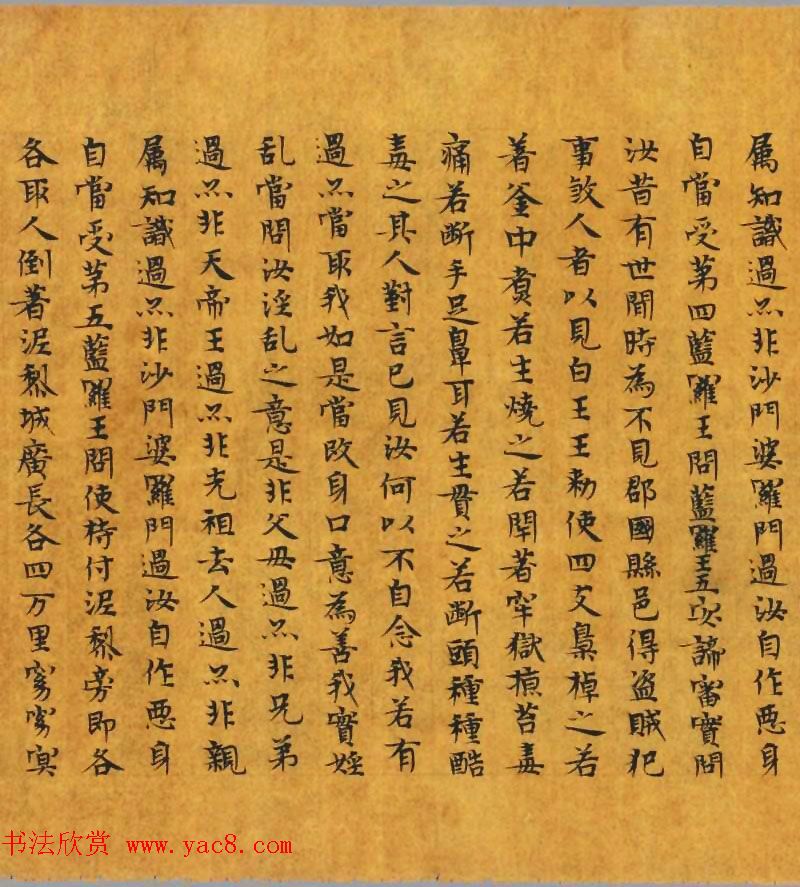 属知識過亦非沙門婆羅門過汝自作惡身
自當受第四藍羅王問藍羅王五實諦審實問
汝昔有世間時為不見郡國縣邑得盜賊犯
事煞人者以見白王王勑使四支梟棹之若
著釜中煮若生燒之若閉著牢獄掠笞毒
痛若斷手足鼻耳若生貫之若斷頭種種酷
毒之其人對言已見汝何以不自念我若有
過亦當取我如是當改身口意為善我實婬
乱當問汝淫乱之意是非父母過亦非兄弟
過亦非天帝王過亦非先祖去人過亦非親
属知識過亦非沙門婆羅門過汝自作惡身
自當受第五藍羅王問使持付泥黎旁即各
各取人倒著泥黎城廣長各四万里窈窈冥
书法欣赏 www.yac8.com